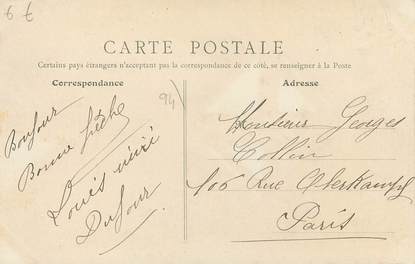 6 €
CARTE POSTALE
Certains pays étrangers n'acceptant pas la correspondance de ce côté, se renseigner à la Poste
Correspondance
94
Bonjour
Bonne fête
Louis
Dufour
Adresse
Monsieur Georges
Collin
106 Rue Oberkampf
Paris